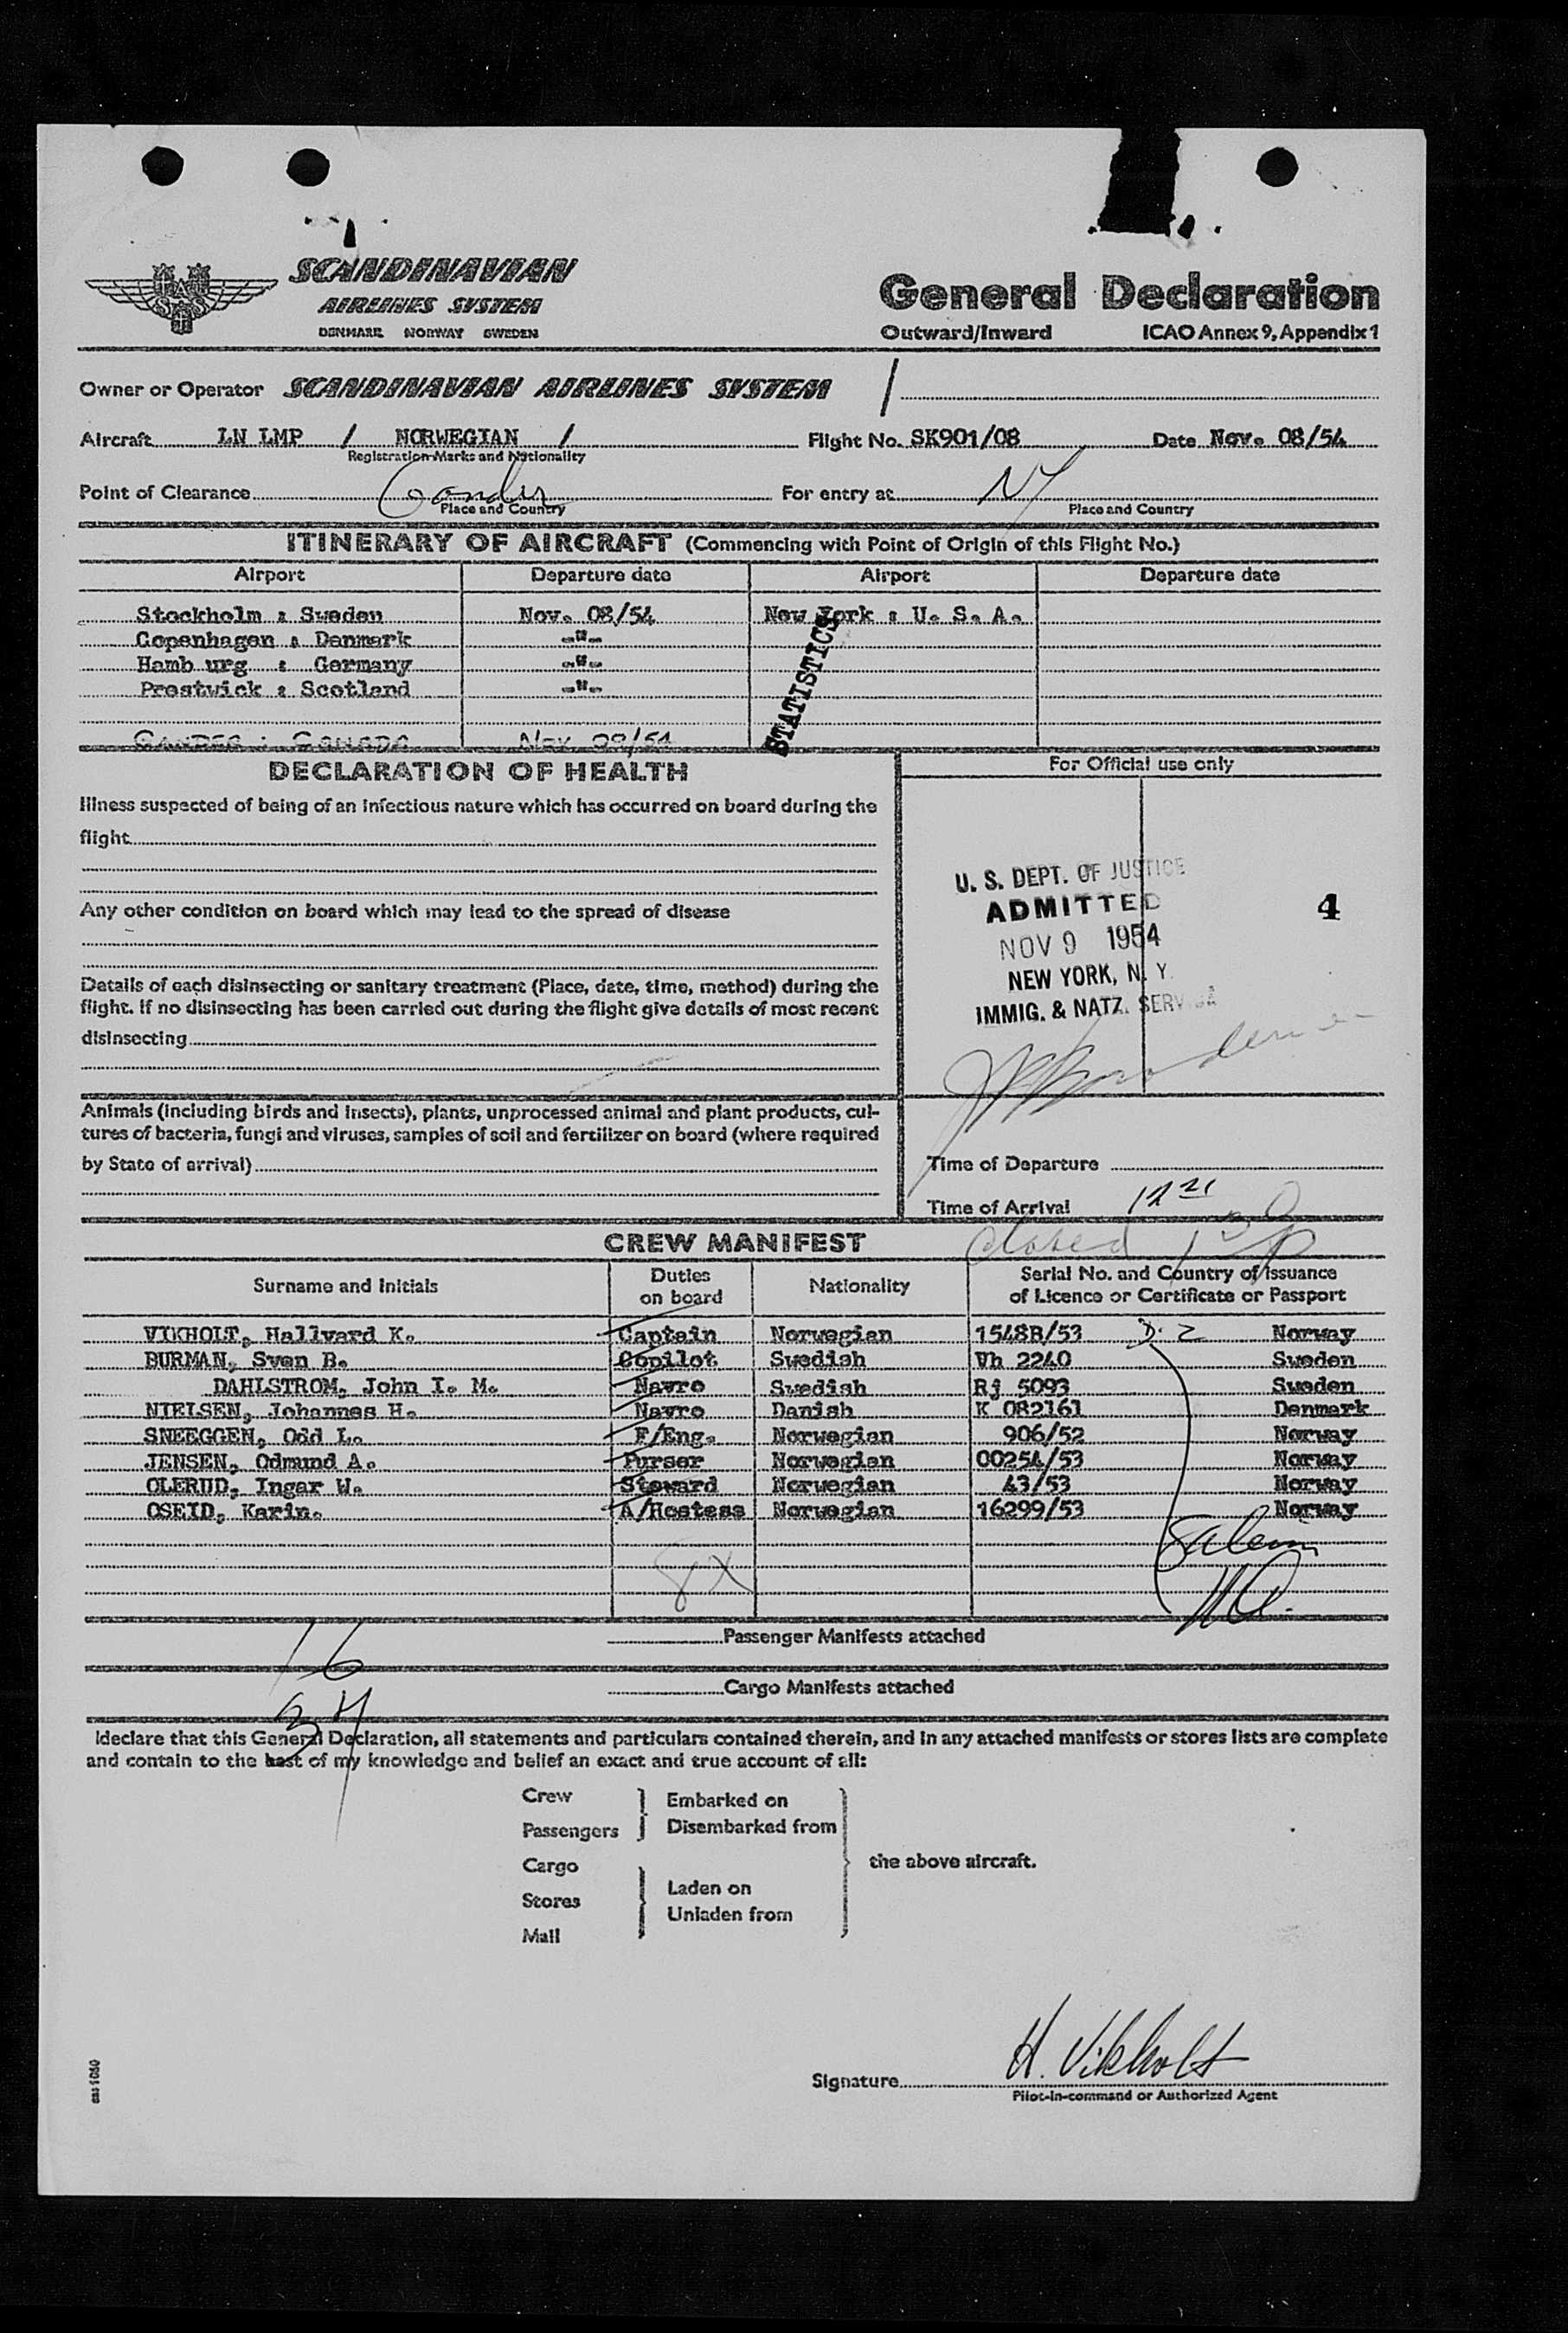 SCANDINAVIAN
AIRLINES SYSTEM
DENMARK NORWAY SWEDEN
General Declaration
Outward/Inward ICAO Annex 9, Appendix 1
Owner or Operator SCANDINAVIAN AIRLINES SYSTEM /
Aircraft LN LMP / NORWEGIAN / Flight No. SK901/08 Date Nov. 08/54
Registration Marks and Nationality
Point of Clearance Gander For entry at NY
Place and Country Place and Country
ITINERARY OF AIRCRAFT (Commencing with Point of Origin of this Flight No.)
Airport Departure date Airport Departure date
Stockholm : Sweden Nov. 08/54 New York : U. S. A.
Copenhagen : Denmark -"-
Hamb urg : Germany -"-
Prestwick : Scotland -"-
STATISTICS
GANDER : CANADA Nov 09/54
DECLARATION OF HEALTH
For Official use only
Illness suspected of being of an infectious nature which has occurred on board during the
flight
Any other condition on board which may lead to the spread of disease
Details of each disinsecting or sanitary treatment (Place, date, time, method) during the
flight. If no disinsecting has been carried out during the flight give details of most recent
disinsecting
U. S. DEPT. OF JUSTICE
ADMITTED
NOV 9 1954
NEW YORK, N. Y.
IMMIG. & NATZ. SERVICE
4
Animals (including birds and insects), plants, unprocessed animal and plant products, cul-
tures of bacteria, fungi and viruses, samples of soil and fertilizer on board (where required
by State of arrival)
Time of Departure
Time of Arrival 12 21
closed
CREW MANIFEST
Surname and Initials Duties on board Nationality Serial No. and Country of Issuance of Licence or Certificate or Passport
VIKHOLT, Hallvard K. Captain Norwegian 1548B/53 D. 2 Norway
BURMAN, Sven B. Copilot Swedish Vh 2240 Sweden
DAHLSTROM, John I. M. Navro Swedish Rj 5093 Sweden
NIELSEN, Johannes H. Navro Danish K 082161 Denmark
SNEEGGEN, Odd L. F/Eng. Norwegian 906/52 Norway
JENSEN, Odmund A. Purser Norwegian 00254/53 Norway
OLERUD, Ingar W. Steward Norwegian 43/53 Norway
OSEID, Karin. A/Hostess Norwegian 16299/53 Norway
8X
Passenger Manifests attached
16
Cargo Manifests attached
34
I declare that this General Declaration, all statements and particulars contained therein, and in any attached manifests or stores lists are complete
and contain to the best of my knowledge and belief an exact and true account of all:
Crew
Passengers
Embarked on
Disembarked from
Cargo
Stores
Mail
Laden on
Unladen from
the above aircraft.
Signature H. Vikholt
Pilot-in-command or Authorized Agent
sas 1080